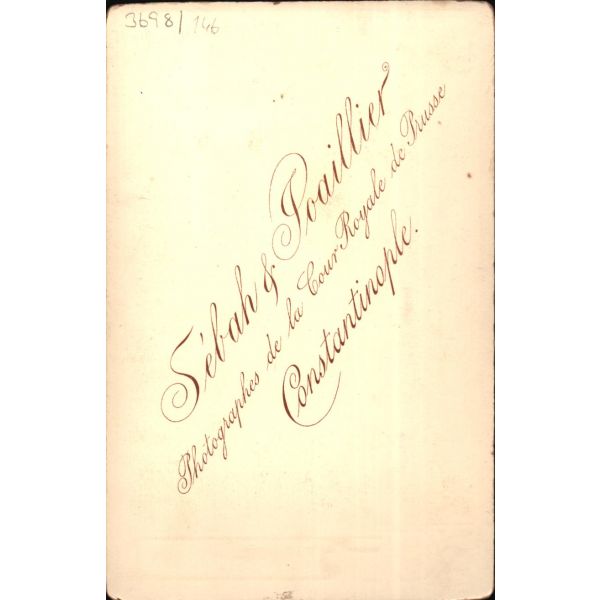 3698/146
Sébah & Joaillier
Photographes de la Cour Royale de Prusse
Constantinople.